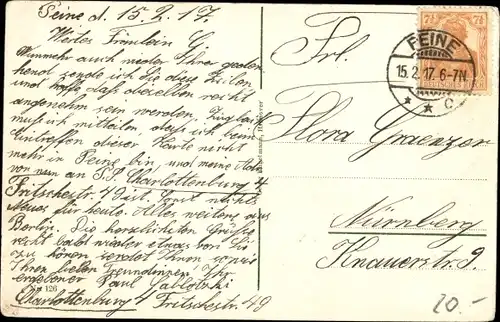 Peine d. 15.2.17.
Wertes Fräulein G.
Nunmehr auch wieder Ihrer gedenkend
sende ich Sie diese Zeilen
und hoffe, daß dieselben recht
angenehm sein werden. Zugleich
muß ich mitteilen, daß ich beim
Eintreffen dieser Karte nicht
mehr in Peine bin, und meine Adr.
von nun an Charlottenburg 4
Fritschestr. 49 ist. Sonst nichts
Neues für heute. Alles weitere aus
Berlin. Die herzlichsten Grüße
recht bald wieder etwas von Sie
zu hören sendet Ihnen sowie
Ihren lieben Freundinnen Ihr
ergebener Paul
Charlottenburg 4 Fritschestr. 49
126
Frl.
Flora Graenzer
Nürnberg
Knauerstr. 9.
7½ 7½
PEINE
15.2.17. 6-7N
* * c
20.-